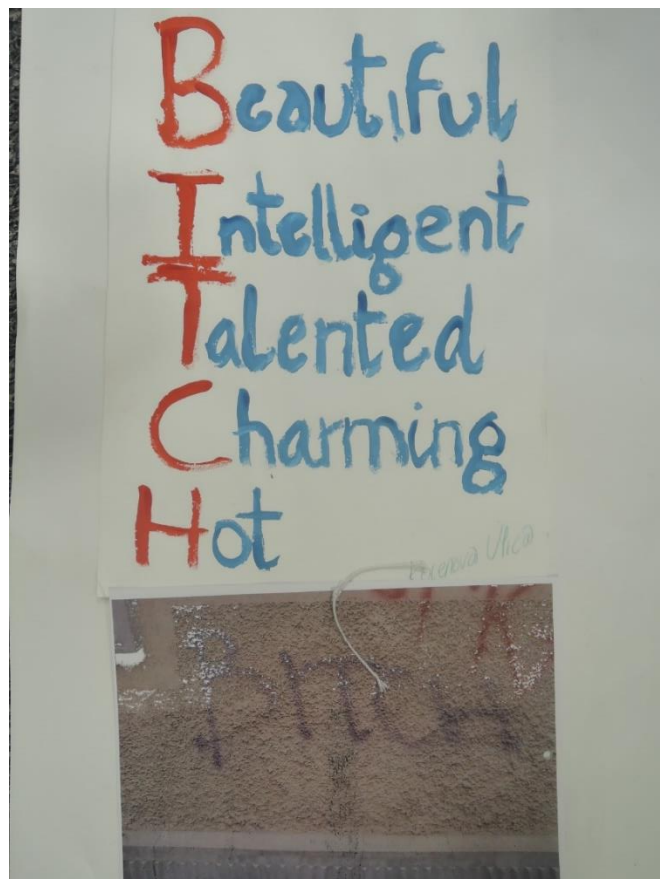 Beautiful
Intelligent
Talented
Charming
Hot
Bitch